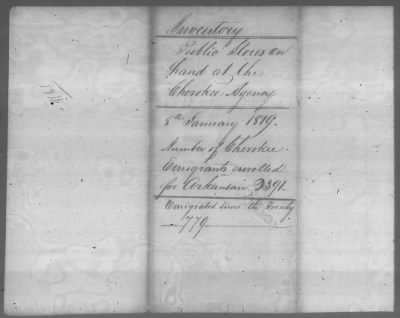 Inventory
Public Stores on
hand at the
Cherokee Agency
8th January 1819.
Number of Cherokee
Emigrants enrolled
for Arkansaw 2391.
Emigrated since the Treaty
—779—